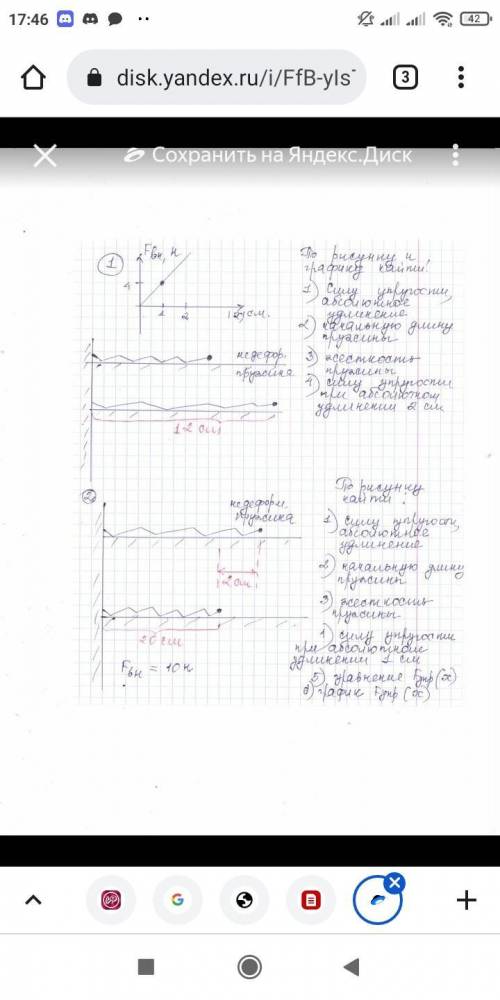 17:46
42
disk.yandex.ru/i/FfB-yIsT
3
Сохранить на Яндекс.Диск
1
Fвн, н
4
1 2
см.
По рисунку и
графику найти:
1) Силу упругости,
абсолютное
удлинение
2) начальную длину
пружины
3) жесткость
пружины
4) силу упругости
при абсолютном
удлинении 2 см
недефор.
пружина
12 см
2
недеформ.
пружина
2 см
20 см
Fвн = 10 н
По рисунку
найти:
1) силу упругости,
абсолютное
удлинение
2) начальную длину
пружины
3) жесткость
пружины
1) силу упругости
при абсолютном
удлинении 1 см
5) уравнение Fупр(x)
6) график Fупр(x)